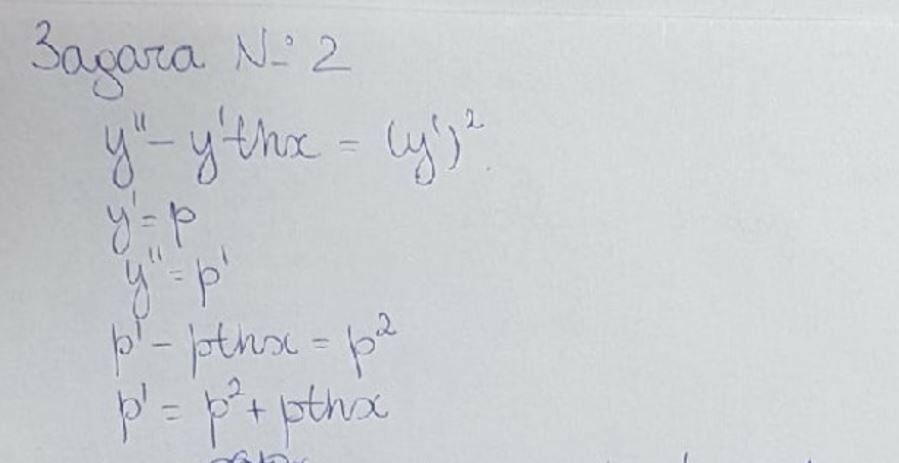 Задача № 2
y'' - y'thx = (y')²
y' = p
y'' = p'
p' - pthx = p²
p' = p² + pthx